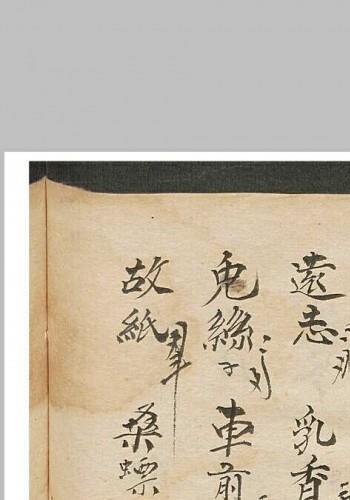 遠志 乳香
兔絲子 車前
故紙 桑螵